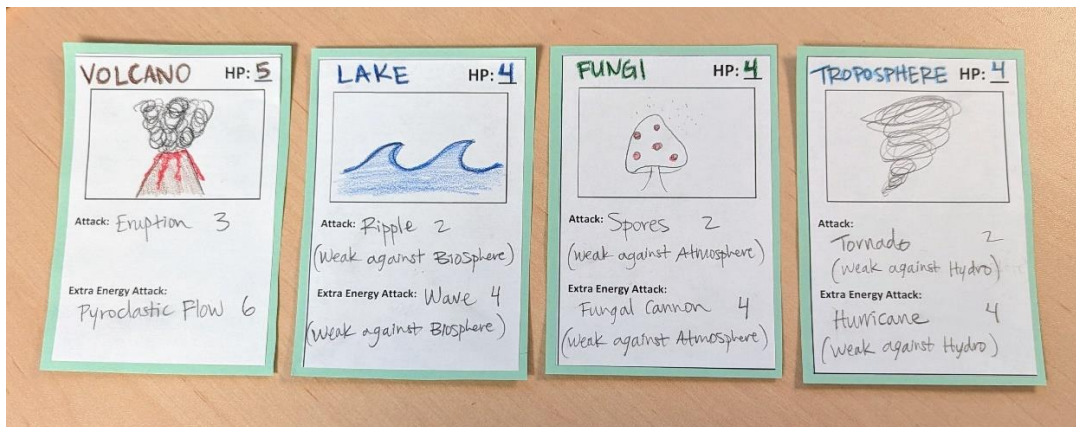 VOLCANO HP: 5
Attack: Eruption 3
Extra Energy Attack:
Pyroclastic Flow 6
LAKE HP: 4
Attack: Ripple 2
(Weak against BIOSphere)
Extra Energy Attack: Wave 4
(Weak against BIOSphere)
FUNGI HP: 4
Attack: Spores 2
(weak against Atmosphere)
Extra Energy Attack:
Fungal Cannon 4
(weak against Atmosphere)
TROPOSPHERE HP: 4
Attack:
Tornado 2
(weak against Hydro)
Extra Energy Attack:
Hurricane 4
(weak against Hydro)